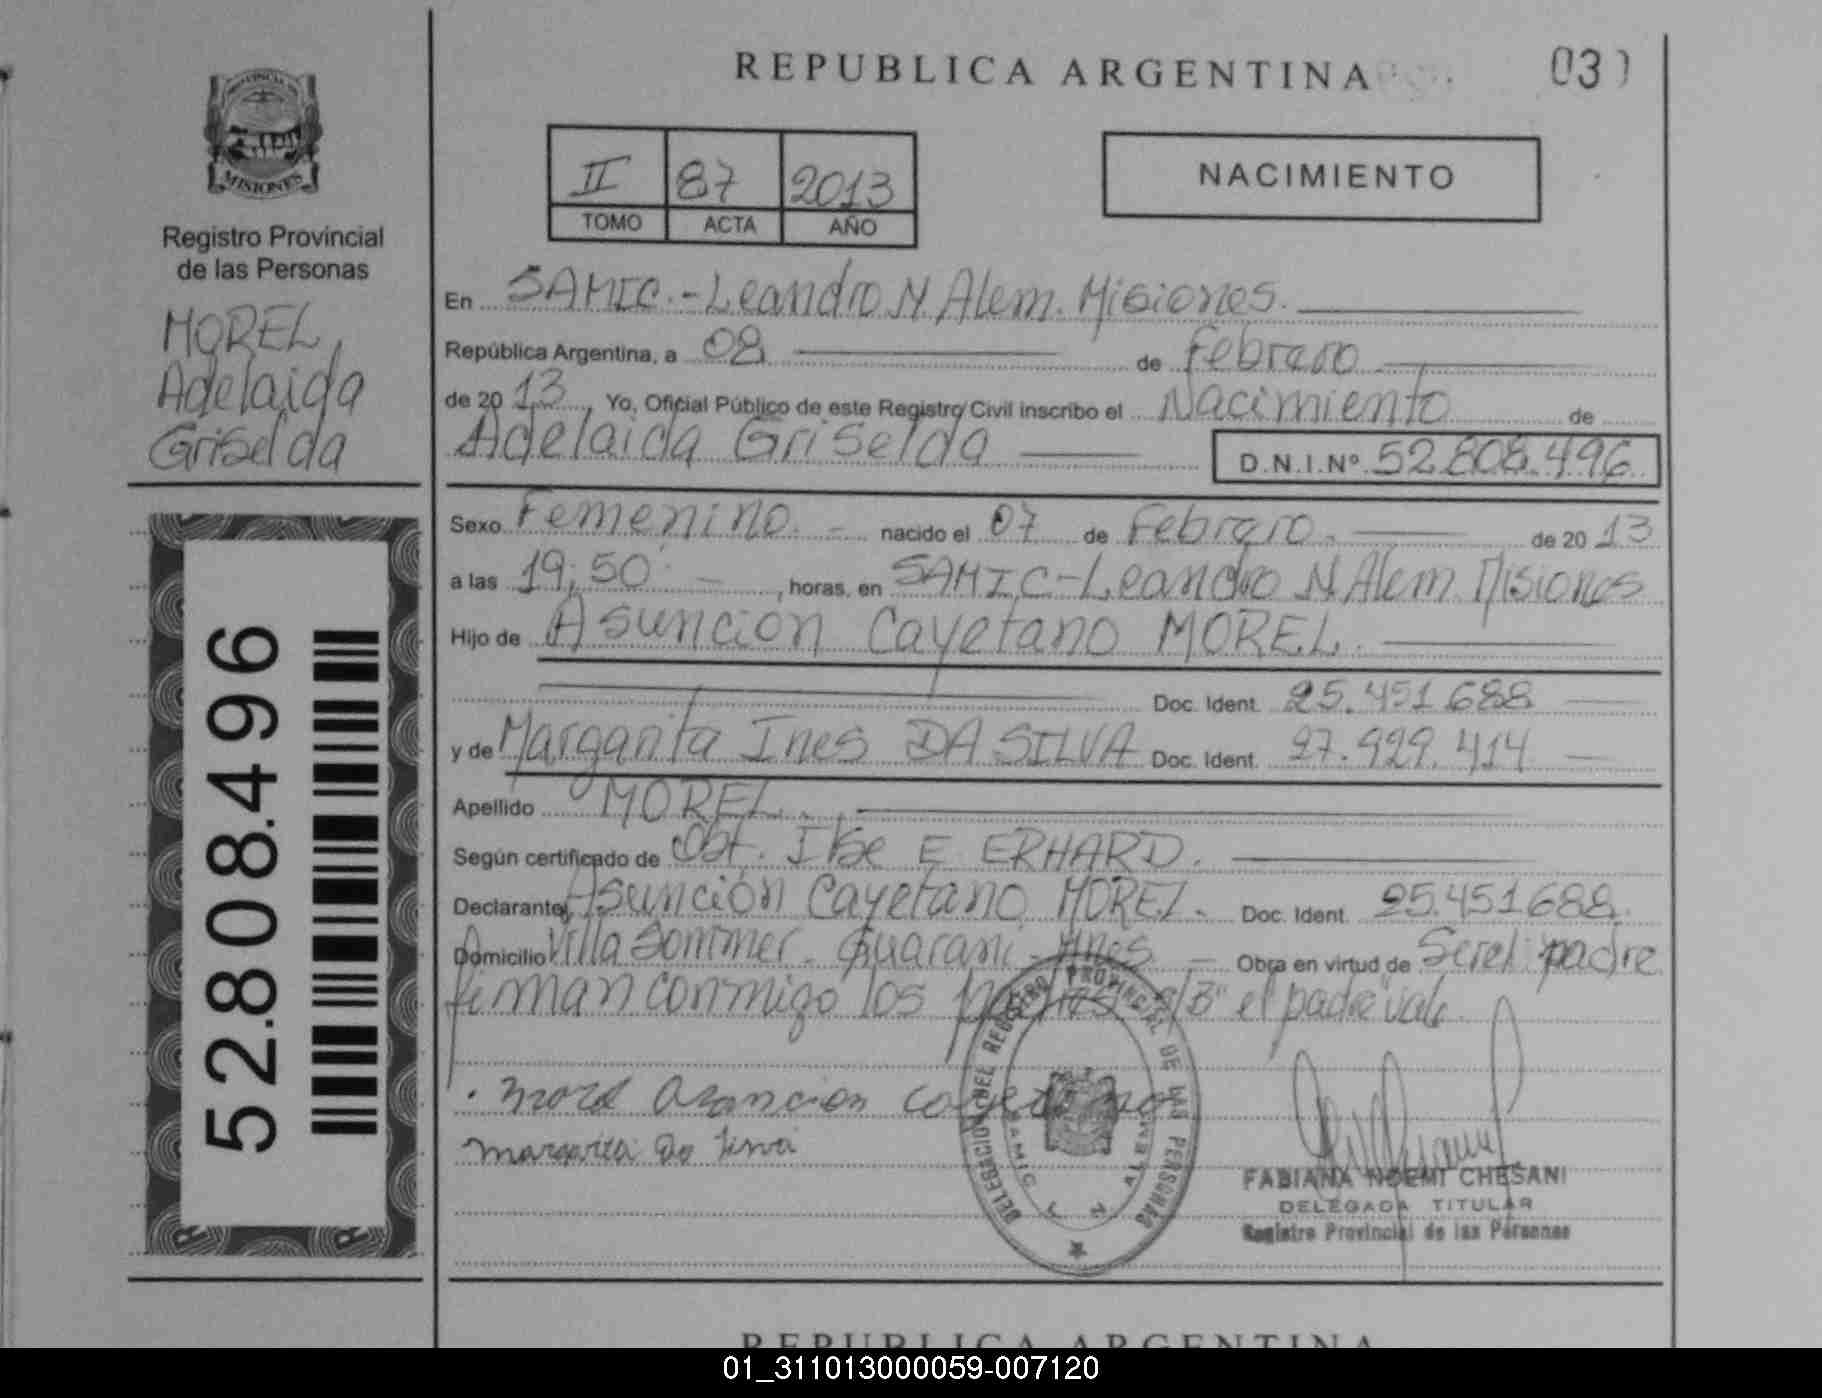 REPUBLICA ARGENTINA
03
PROVINCIA
MISIONES
Registro Provincial
de las Personas
MOREL,
Adelaida
Griselda
II 87 2013
TOMO ACTA AÑO
NACIMIENTO
En SAMIC.-Leandro N Alem. Misiones.
República Argentina, a 08 de Febrero
de 20 13, Yo, Oficial Público de este Registro Civil inscribo el Nacimiento de
Adelaida Griselda D.N.I.Nº 52.808.496
Sexo Femenino. nacido el 07 de Febrero. de 20 13
a las 19,50 , horas, en SAMIC-Leandro N Alem. Misiones
Hijo de Asunción Cayetano MOREL.
Doc. Ident. 25.451.688
y de Margarita Ines DA SILVA Doc. Ident. 27.929.414
Apellido MOREL.
Según certificado de Obt. Ilse E. ERHARD.
Declarante Asunción Cayetano MOREL. Doc. Ident. 25.451688.
Domicilio Villa Sommer. Guarani - Mnes Obra en virtud de padre
firman conmigo los padres s/B" el padre vale.
Morel Asancion cayetano
margarita Da silva
DELEGACION DEL REGISTRO PROVINCIAL DE LAS PERSONAS
SAMIC L. N. ALEM
FABIANA NOEMI CHESANI
DELEGADA TITULAR
Registro Provincial de las Personas
52.808.496
REPUBLICA ARGENTINA
01_311013000059-007120